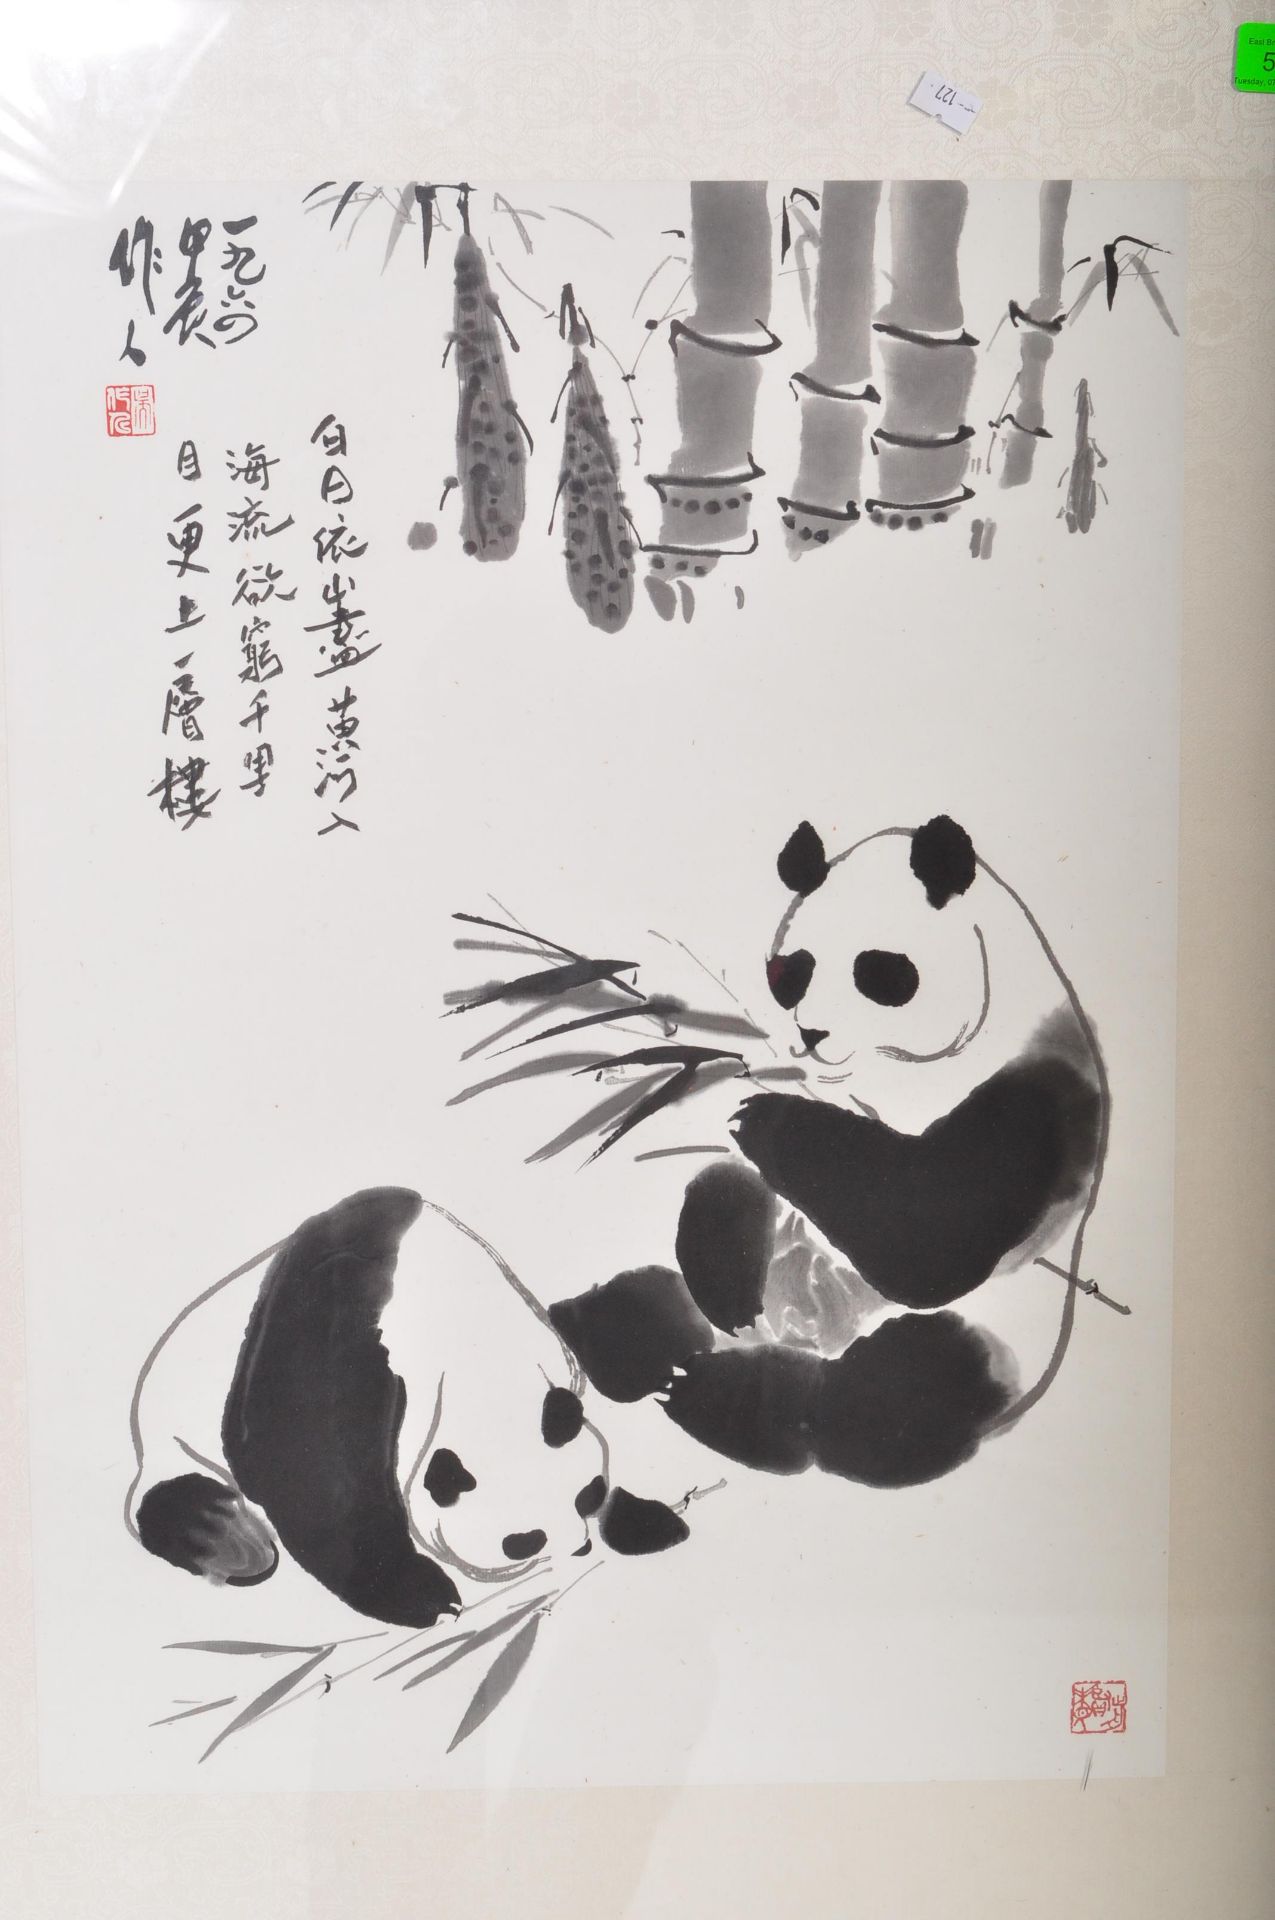 一九六四
甲辰
作人
白日依山盡黄河入
海流欲窮千里
目更上一層樓
吴作人
127
East Br
5
Tuesday, 07